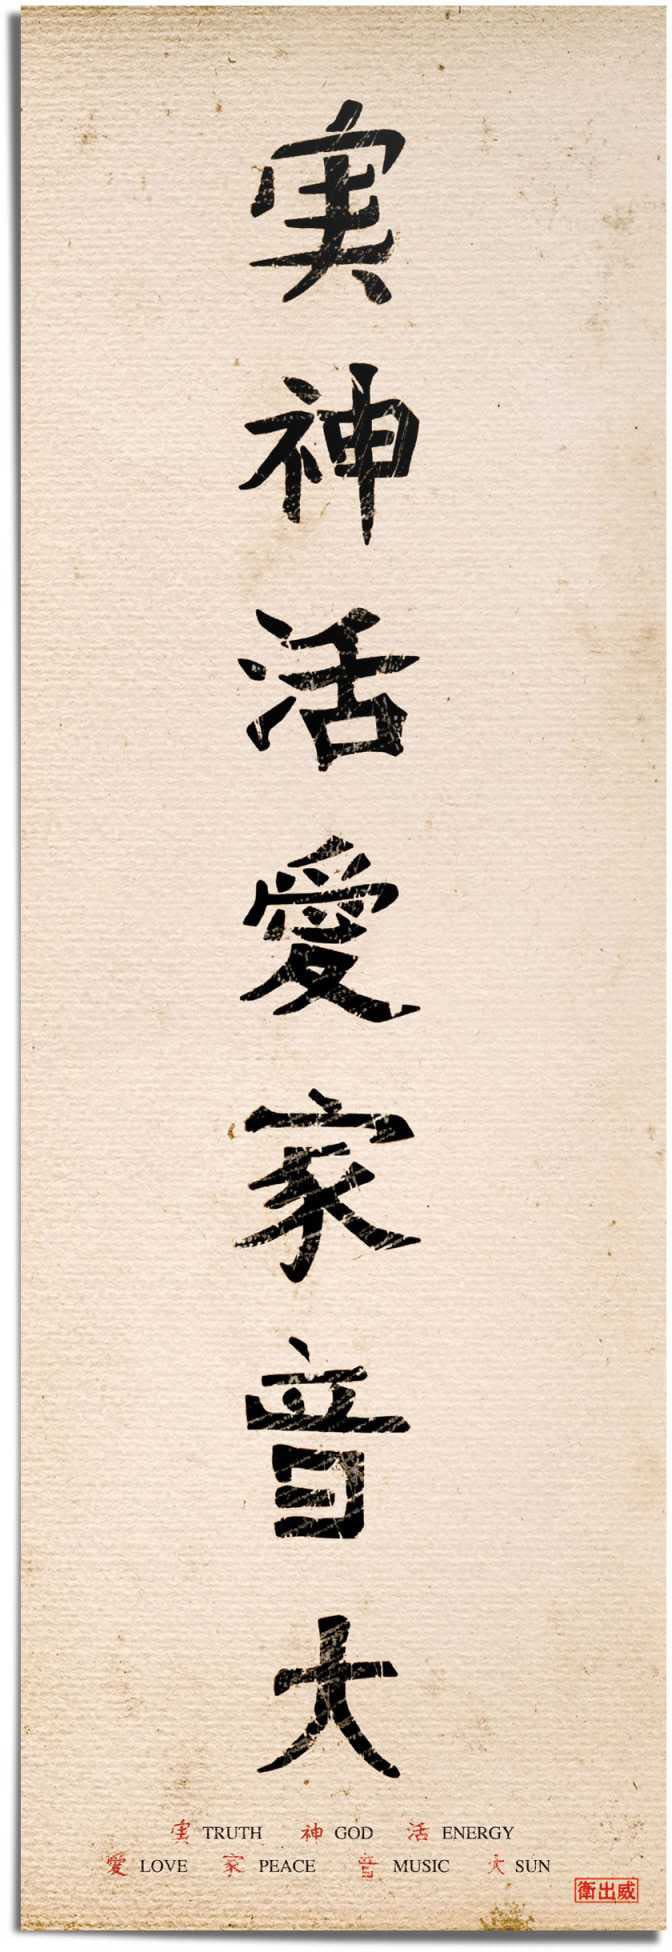 実
神
活
愛
家
音
大
実 TRUTH 神 GOD 活 ENERGY
愛 LOVE 家 PEACE 音 MUSIC 大 SUN
衛出威